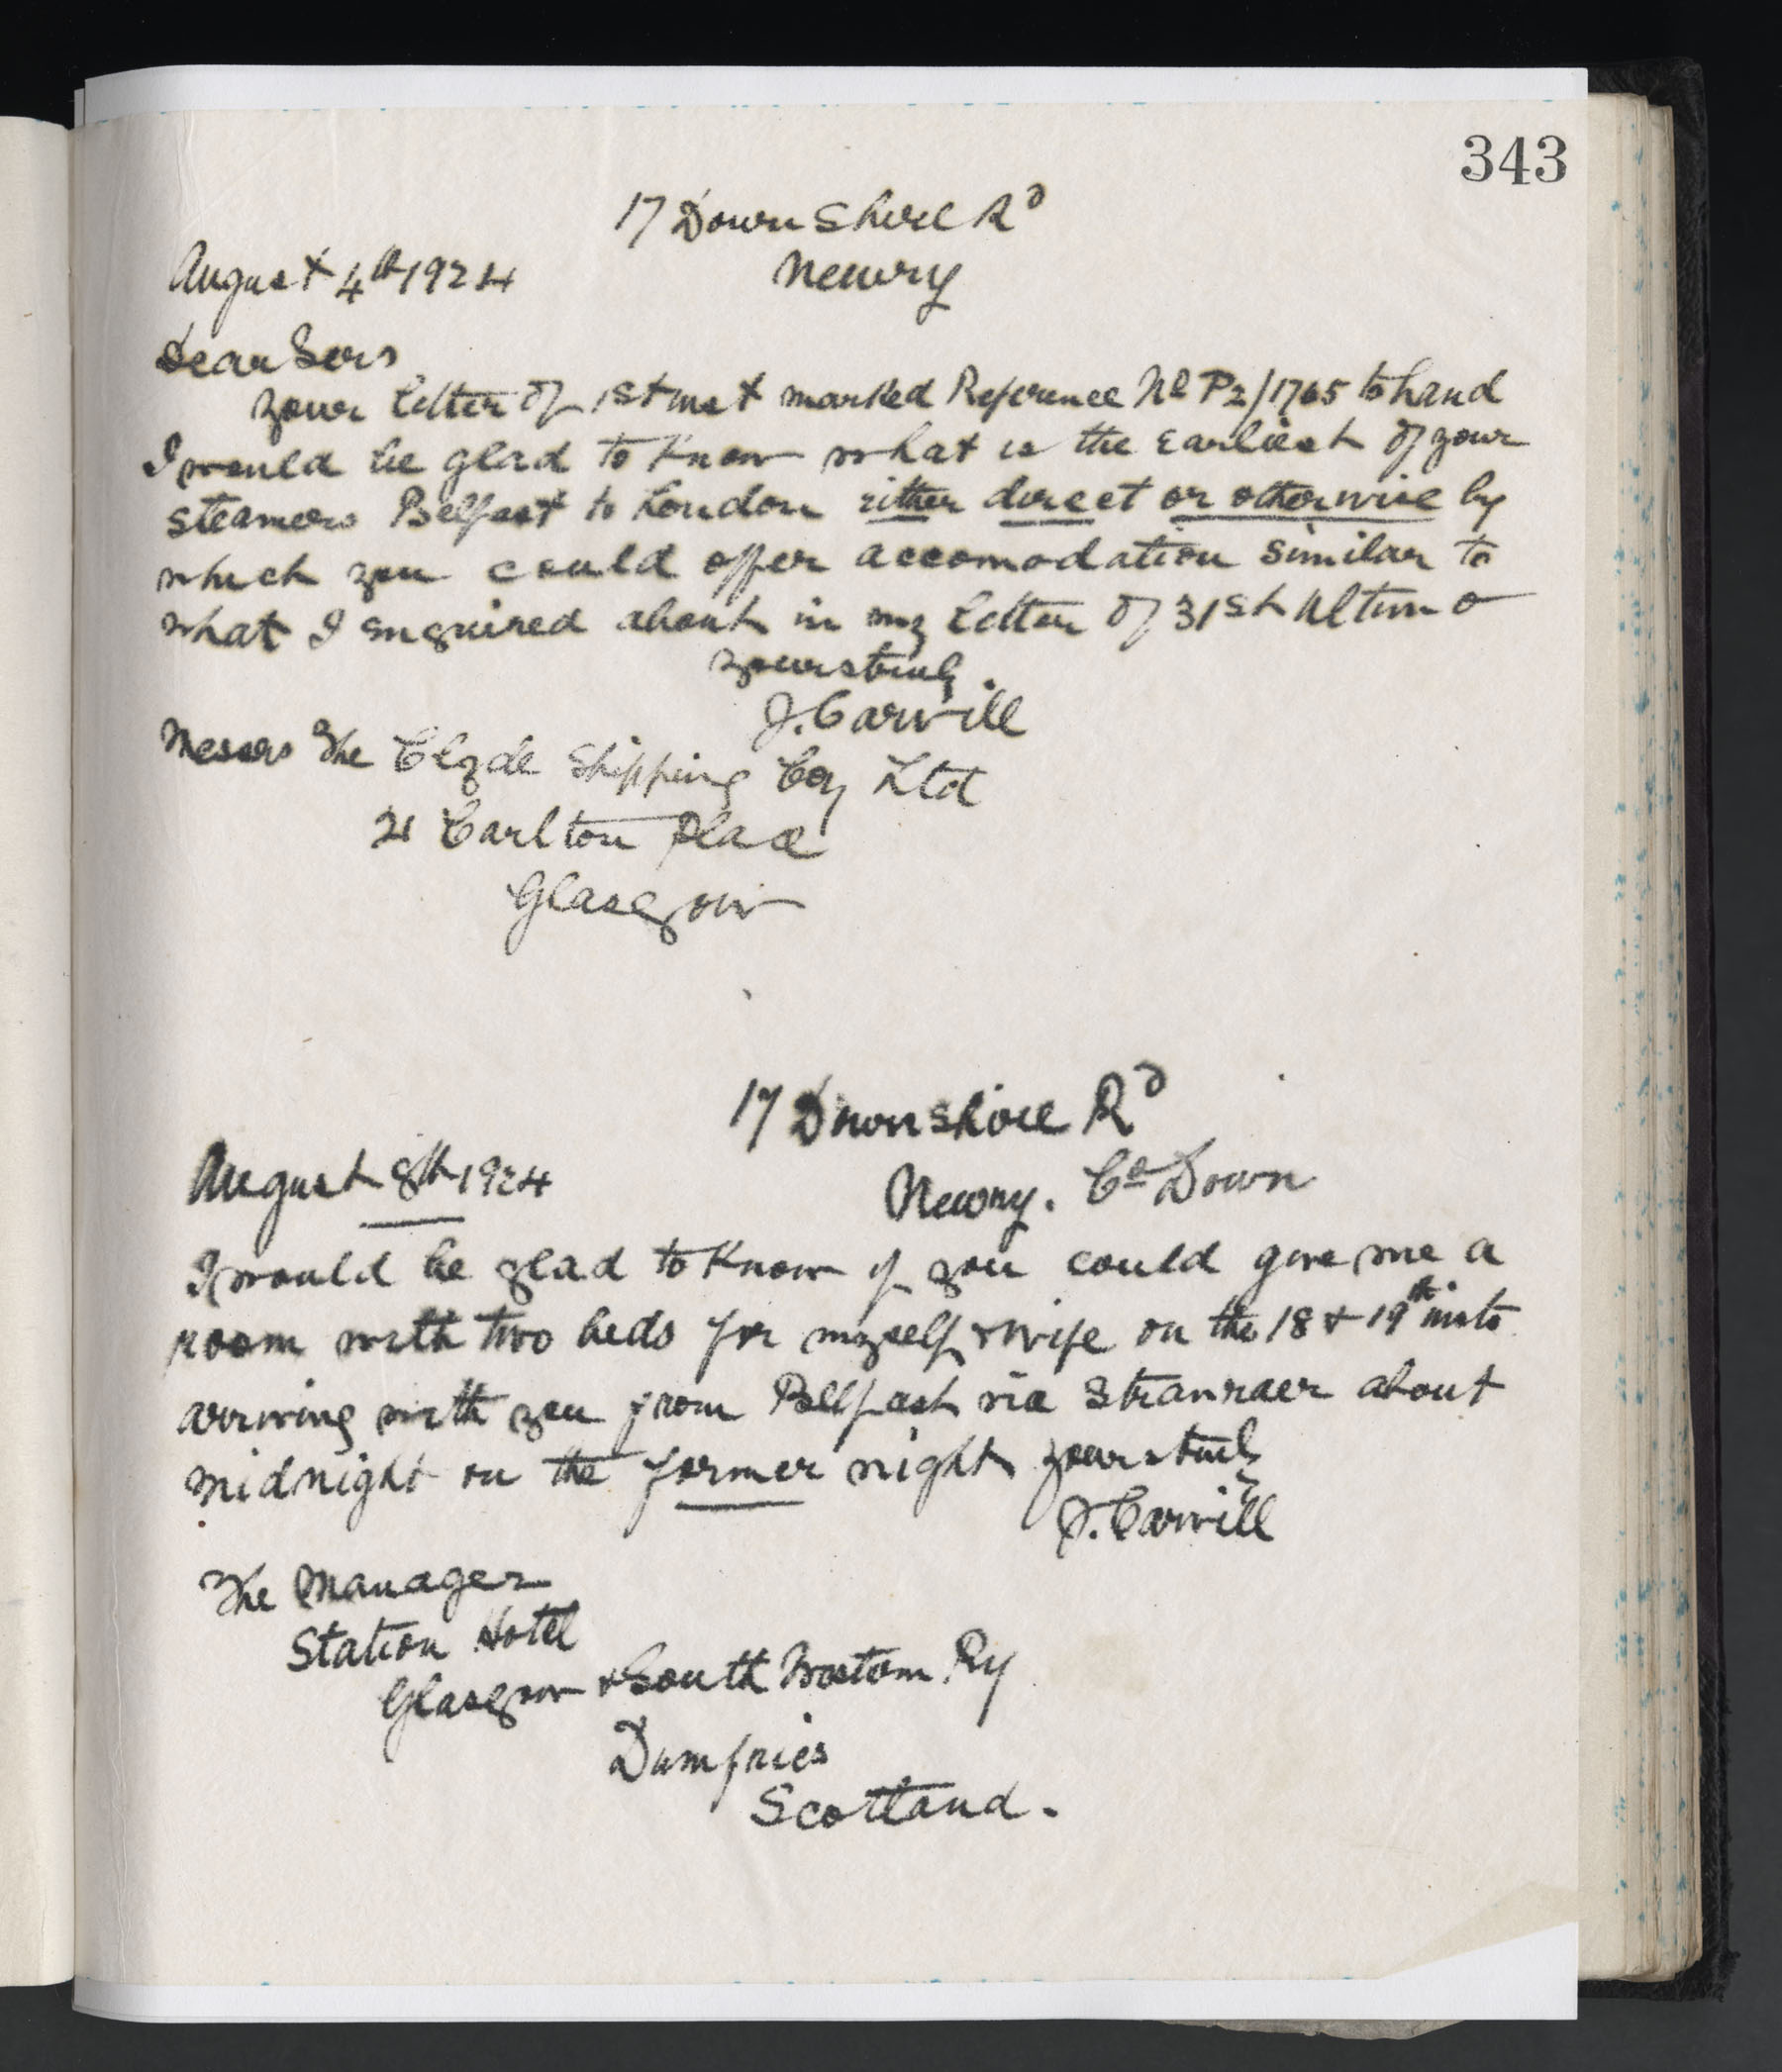 343
17 Downshire Rd
August 4th 1924 Newry
Dear Sirs
Your letter of 1st inst marked Reference No P2/1765 to hand
I would be glad to know what is the earliest of your
steamers Belfast to London either direct or otherwise by
which you could offer accomodation similar to
what I enquired about in my letter of 31st Ultimo
Yours truly
J. Carvill
Messrs The Clyde Shipping Coy Ltd
21 Carlton Place
Glasgow
17 Downshire Rd
August 8th 1924 Newry. Co Down
I would be glad to know if you could give me a
room with two beds for myself & wife on the 18 & 19th insts
arriving with you from Belfast via Stranraer about
midnight on the former night Yours truly
J. Carvill
The Manager
Station Hotel
Glasgow & South Western Ry
Dumfries
Scotland.